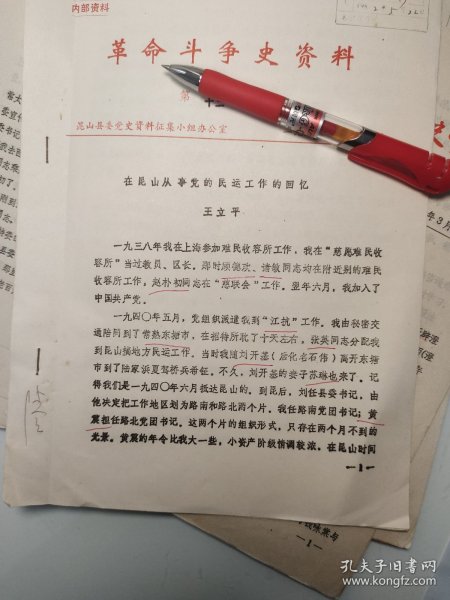 内部资料
革命斗争史资料
第
昆山县委党史资料征集小组办公室
在昆山从事党的民运工作的回忆
王立平
一九三八年我在上海参加难民收容所工作，我在“慈愿难民收
容所”当过教员、区长。那时顾德欢、诸敏同志均在附近别的难民
收容所工作，赵朴初同志在“慈联会”工作。翌年六月，我加入了
中国共产党。
一九四〇年五月，党组织派遣我到“江抗”工作。我由秘密交
通陪同到了常熟东塘市，在招待所耽了十天左右，张英同志分配我
到昆山搞地方民运工作。当时我随刘开基（后化名石伟）离开东塘
市到了陆家浜夏驾桥吴希征。不久，刘开基的妻子苏琳也来了。记
得我们是一九四〇年六月抵达昆山的。到昆后，刘任县委书记，由
他决定把工作地区划为路南和路北两个片。我任路南党团书记，黄
震担任路北党团书记。这两个片的组织形式，只存在两个月不到的
光景。黄震的年令比我大一些，小资产阶级情调较浓，在昆山时间
—1—
—1—
年3月
孔夫子旧书网
www.kongfz.com